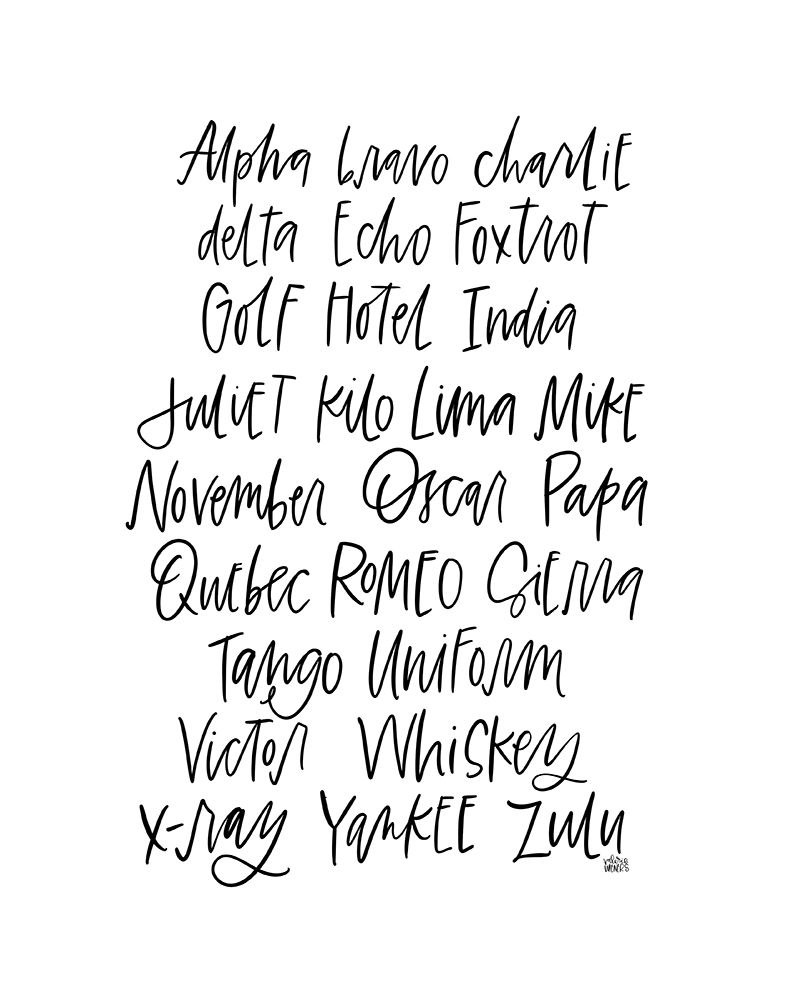 Alpha bravo charliE
delta Echo Foxtrot
GolF Hotel India
JuliET kilo Lima MikE
November Oscar Papa
QuEbec ROMEO SiErra
Tango UniForm
Victor Whiskey
x-ray YankEE Zulu
valerie
wieners